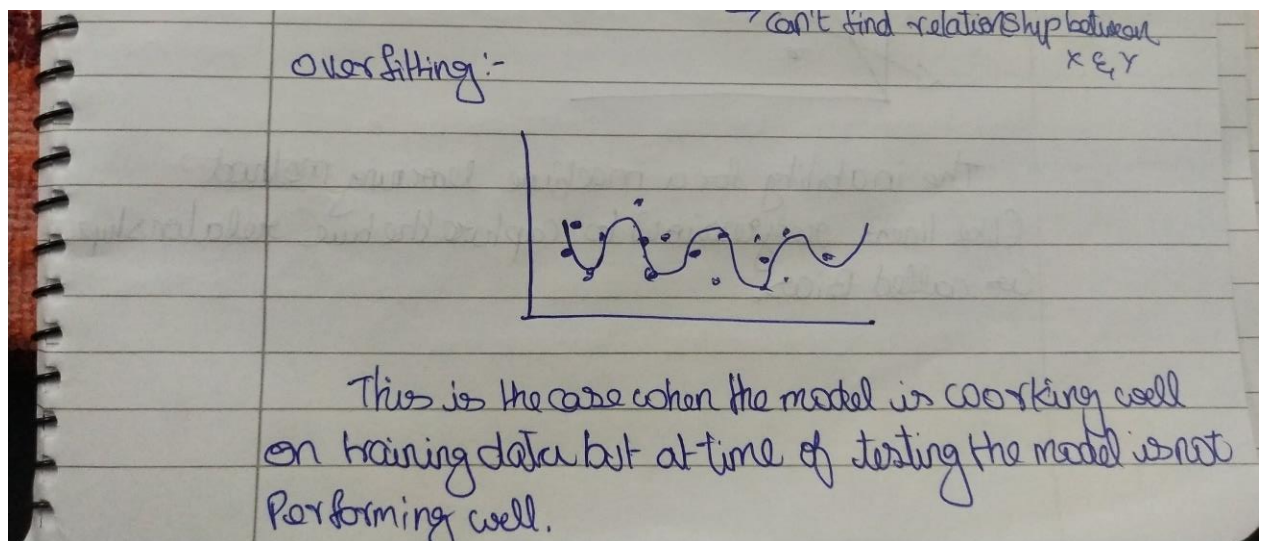 → can't find relationship between
X & Y
Overfitting:-
This is the case when the model is working well
on training data but at time of testing the model is not
Performing well.